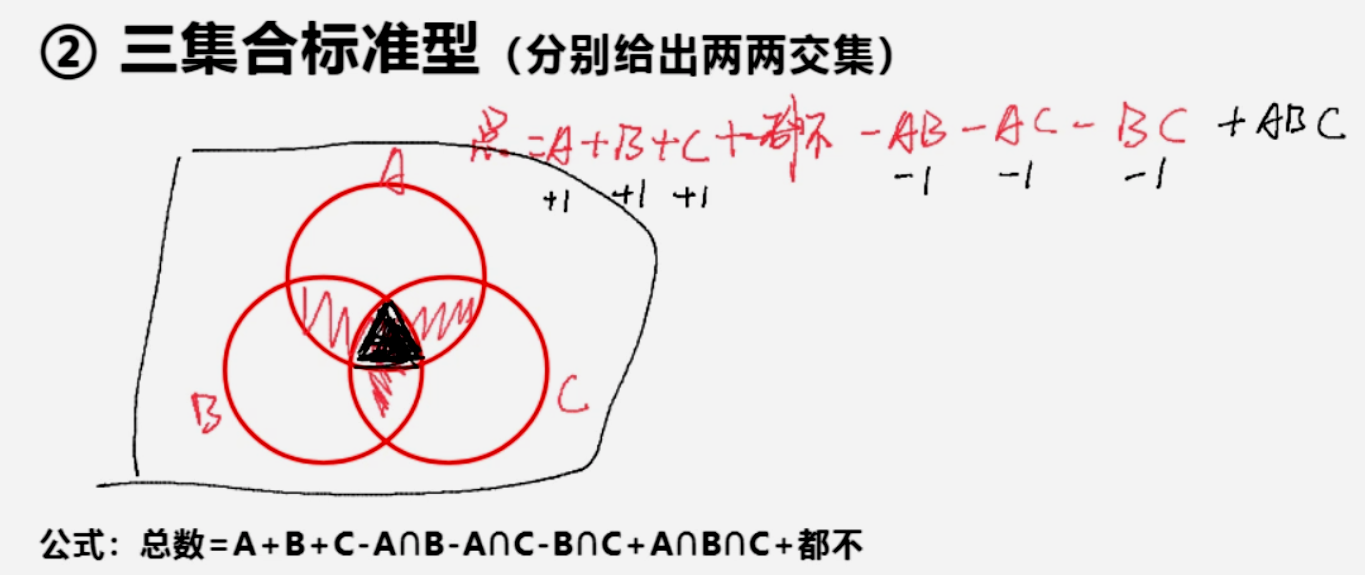 ② 三集合标准型（分别给出两两交集）
总=A+B+C+都不-AB-AC-BC+ABC
+1 +1 +1 -1 -1 -1
A
B
C
公式：总数=A+B+C-A∩B-A∩C-B∩C+A∩B∩C+都不